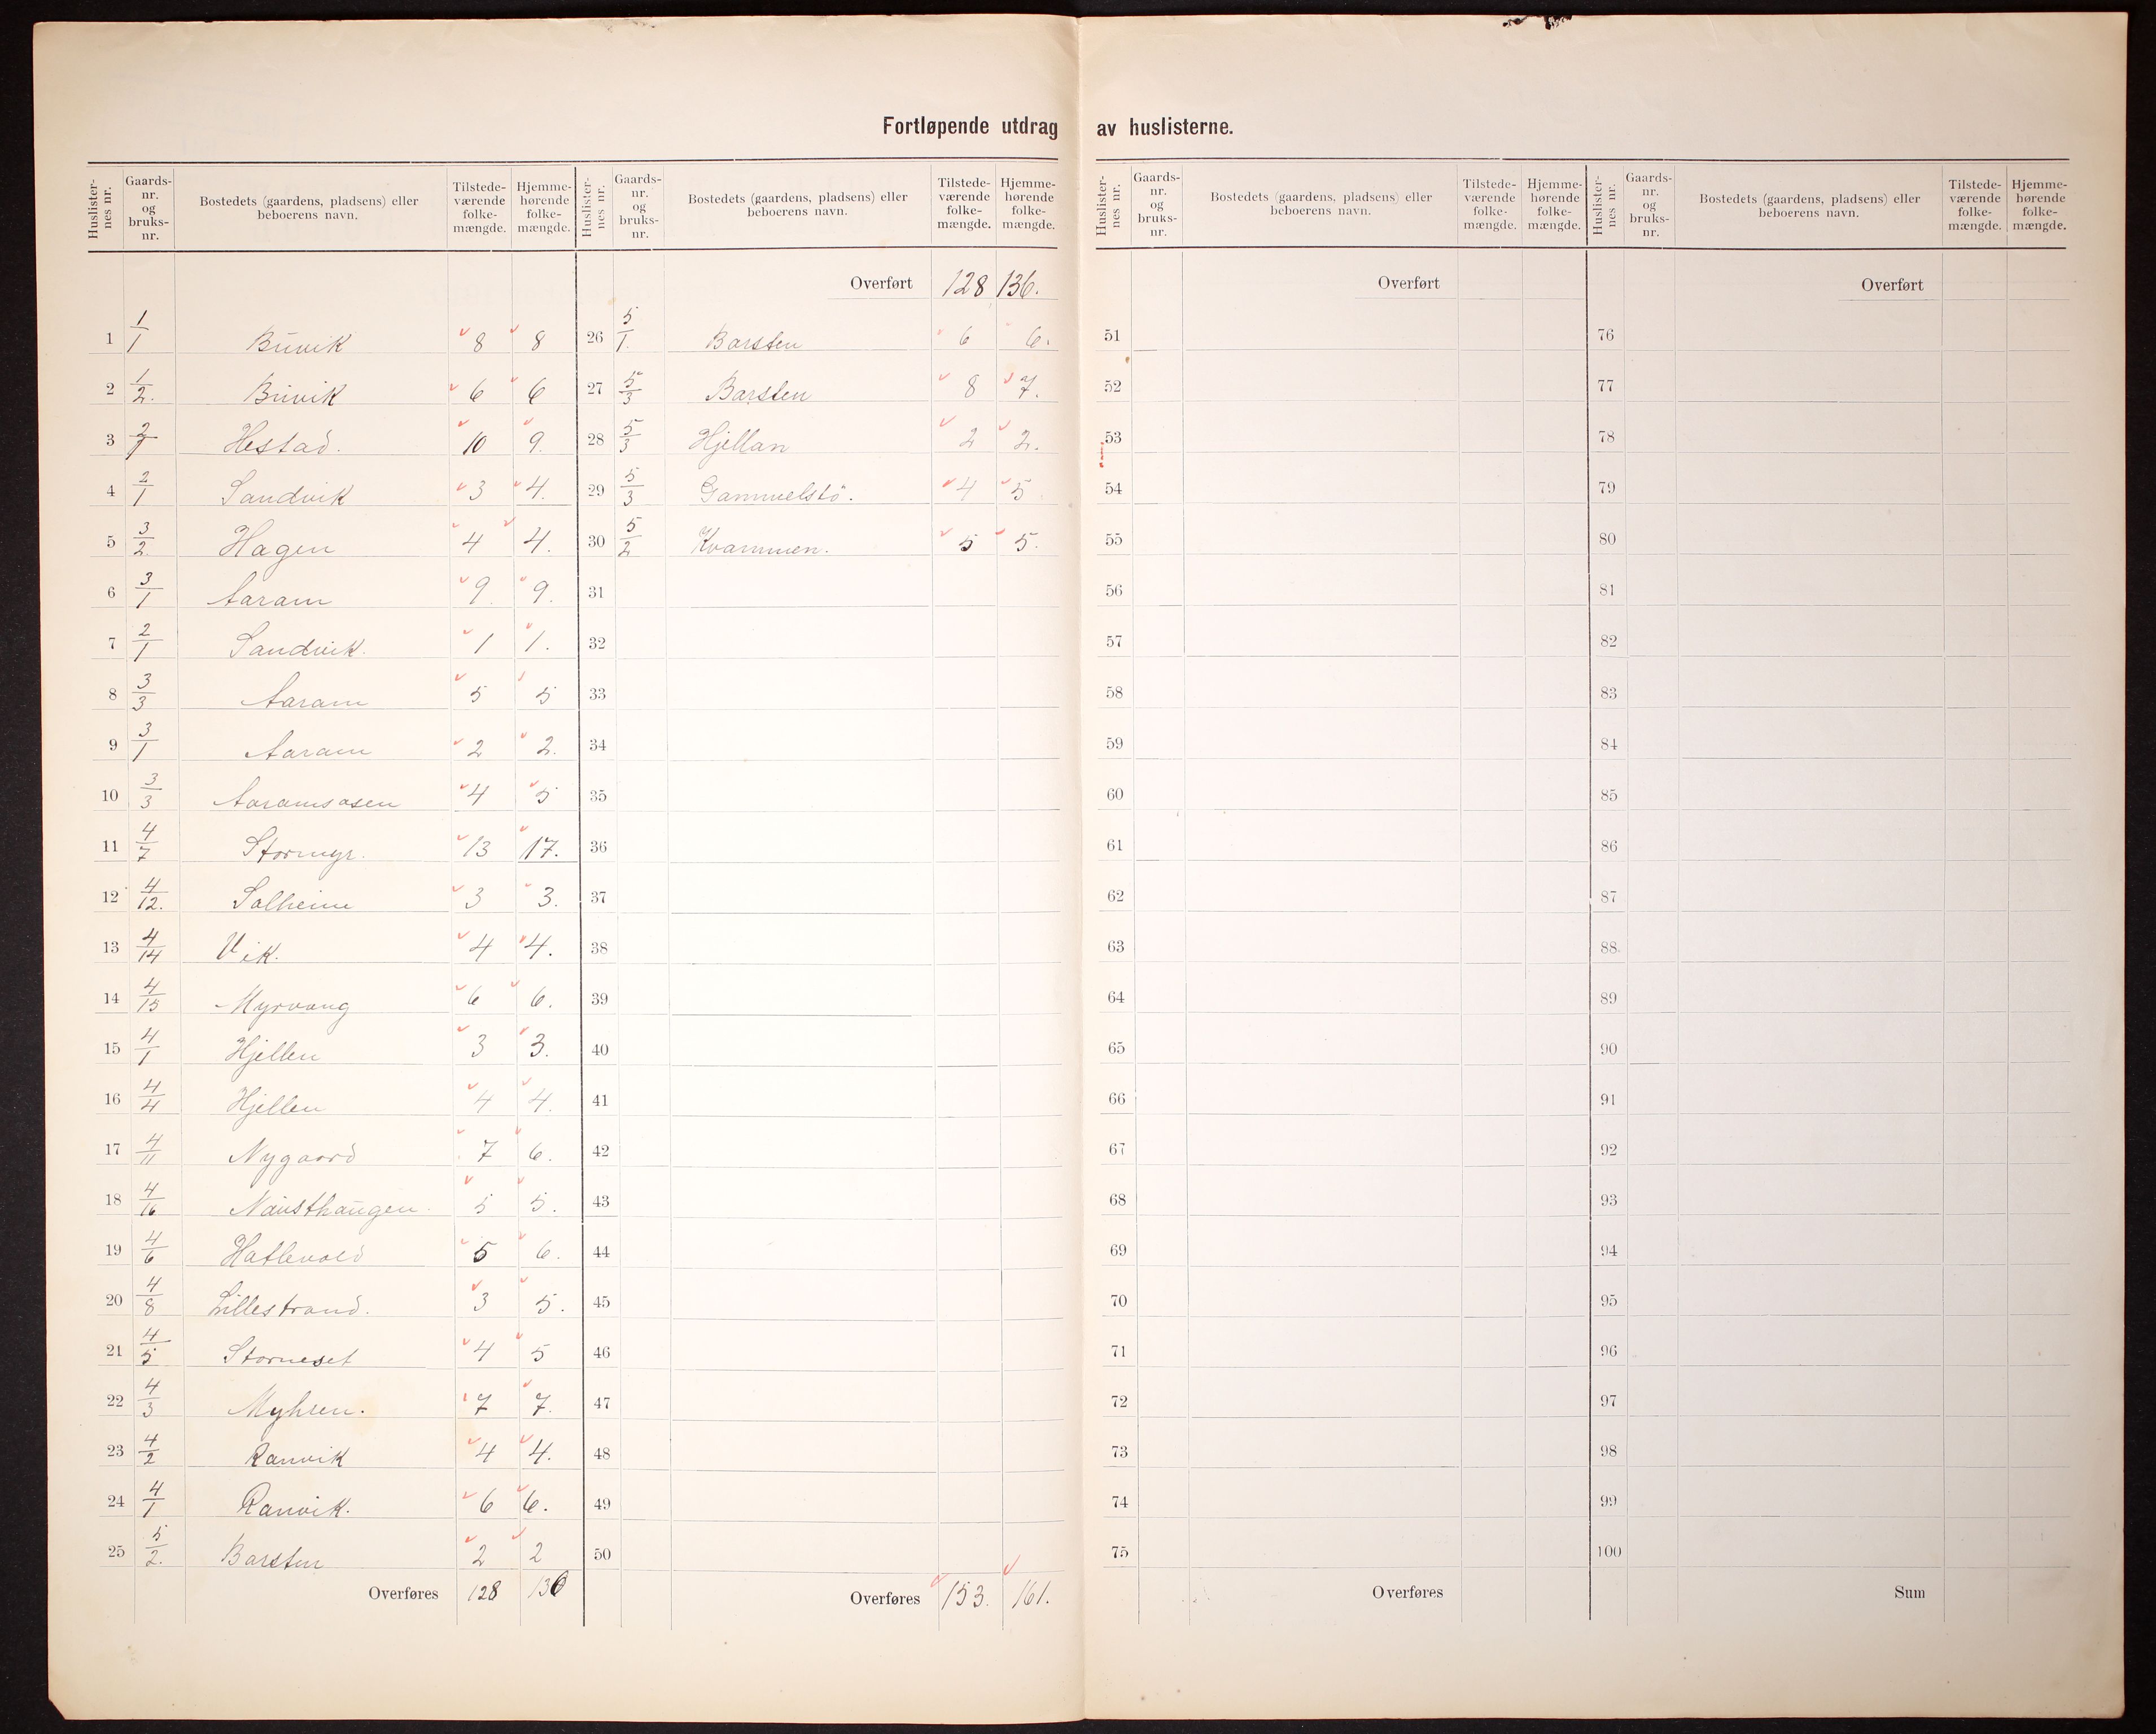 Fortløpende utdrag av huslisterne.
Huslisternes nr. Gaards-nr. og bruks-nr. Bostedets (gaardens, pladsens) eller beboerens navn. Tilstede-værende folke-mængde. Hjemme-hørende folke-mængde.
1 1/1 Buvik 8 8
2 1/2. Buvik 6 6
3 2/1 Hestad. 10 9.
4 2/1 Sandvik 3 4.
5 3/2. Hagen 4 4.
6 3/1 Aaram 9. 9.
7 2/1 Sandvik. 1 1.
8 3/3 Aaram 5 5
9 3/1 Aaram 2 2.
10 3/3 Aaramsasen 4 5
11 4/7 Stormyr. 13 17.
12 4/12. Solheim 3 3.
13 4/14 Vik. 4 4.
14 4/15 Myrvang 6 6.
15 4/1 Hjellen 3 3.
16 4/4 Hjellen 4 4.
17 4/11 Nygaard 7 6.
18 4/16 Nausthaugen. 5 5.
19 4/6 Hatlevold 5 6.
20 4/8 Lillestrand. 3 5.
21 4/5 Storneset 4 5
22 4/3 Myhren. 7 7.
23 4/2 Ranvik 4 4.
24 4/1 Ranvik. 6 6.
25 5/2. Barsten 2 2
Overføres 128 136
Huslisternes nr. Gaards-nr. og bruks-nr. Bostedets (gaardens, pladsens) eller beboerens navn. Tilstede-værende folke-mængde. Hjemme-hørende folke-mængde.
Overført 128 136.
26 5/1. Barsten 6 6.
27 5/3 Barsten 8 7.
28 5/3 Hjellan 2 2.
29 5/3 Gammelstö. 4 5
30 5/2 Kvammen. 5 5.
31
32
33
34
35
36
37
38
39
40
41
42
43
44
45
46
47
48
49
50
Overføres 153. 161.
Huslisternes nr. Gaards-nr. og bruks-nr. Bostedets (gaardens, pladsens) eller beboerens navn. Tilstede-værende folke-mængde. Hjemme-hørende folke-mængde.
Overført
51
52
53
54
55
56
57
58
59
60
61
62
63
64
65
66
67
68
69
70
71
72
73
74
75
Overføres
Huslisternes nr. Gaards-nr. og bruks-nr. Bostedets (gaardens, pladsens) eller beboerens navn. Tilstede-værende folke-mængde. Hjemme-hørende folke-mængde.
Overført
76
77
78
79
80
81
82
83
84
85
86
87
88.
89
90
91
92
93
94
95
96
97
98
99
100
Sum